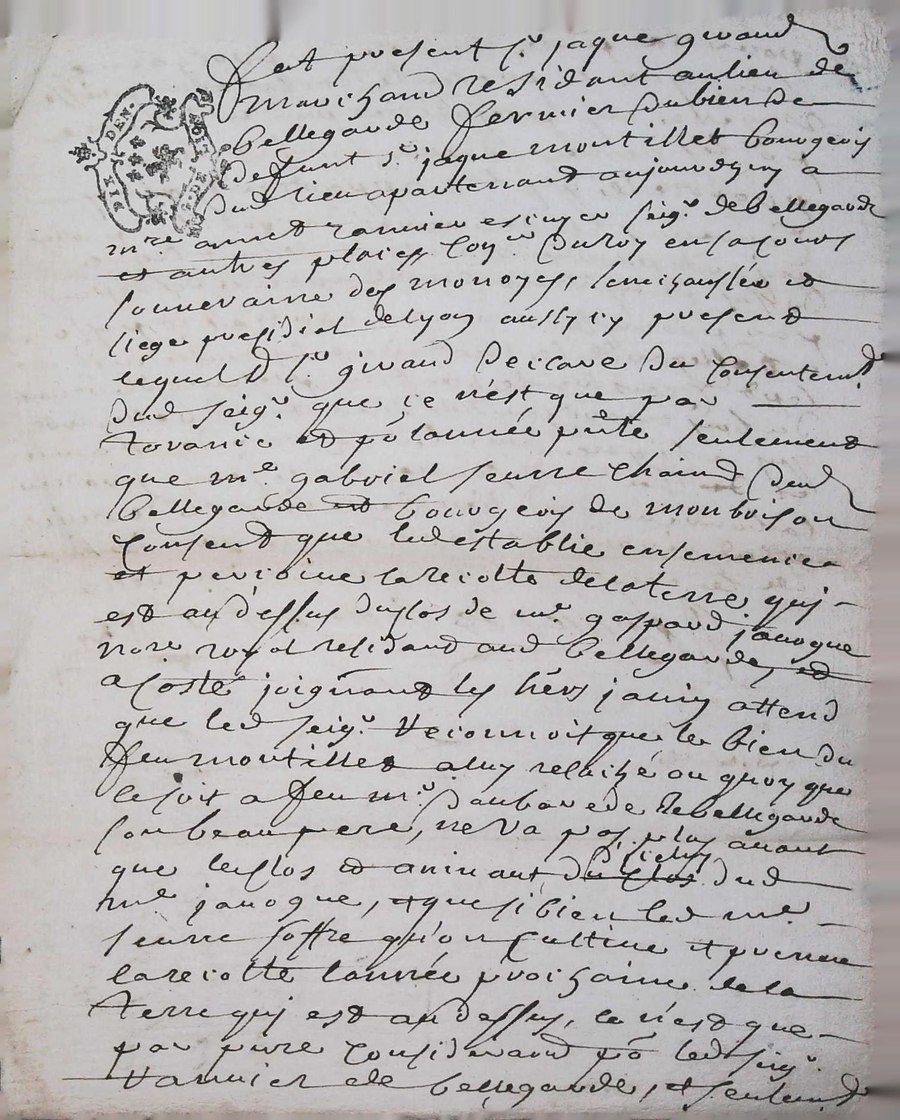 Est present sr jaque giraud
marchand residant au lieu de
bellegarde fermier du bien de
defunt sr jaque montillet bourgeois
dud lieu apartenant aujourdhuy a
mre annet ranvier escuyer seigr de bellegarde
et autres places Conr du roy en sa cour
souveraine des monoyes, senechaussée et
siege presidial de lyon aussy icy present
lequel d sr giraud declare du Consentemt
dud seigr que ce n'est que par
tolerance et pr lannée pnte seulement
que me gabriel seurre chand dud
bellegarde et bourgeois de monbrison
Consent que led establie ensemence
et percoive la recolte de la terre qui
est au dessus du clos de me gaspard janoque
nore royal residant aud bellegarde, et
a costé joignant les hers janin attend
que led seigr reconnoit que le bien du
feu montillet a luy relaché ou quoy que
ce soit a feu mr daubarede de bellegarde
son beau pere, ne va pas plus avant
que le clos et du clos dud
me janoque, et que si bien led me
seurre soffre qu'on Cultive et prenne
la recolte lannée prochaine de la
terre qui est au dessus, ce n'est que
par pure Consideraon pr led seigr
ranvier de bellegarde, et seulemt
DIX DEN.
G. DE LION